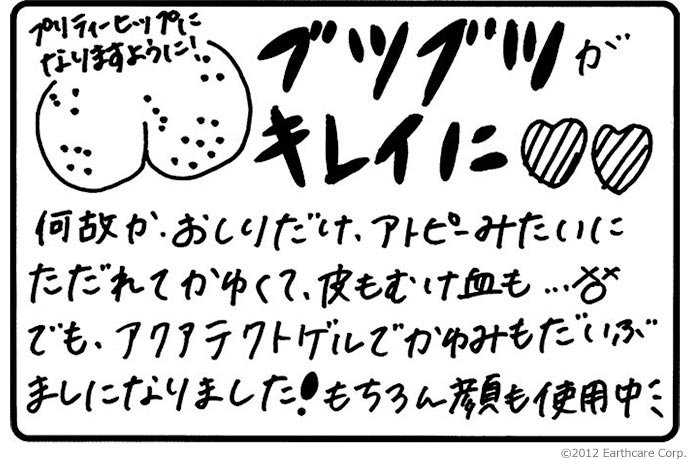 プリティーヒップに
なりますように!
ブツブツが
キレイに
何故か、おしりだけ、アトピーみたいに
ただれてかゆくて、皮もむけ血も…
でも、アクアテクトゲルでかゆみもだいぶ
ましになりました!もちろん顔も使用中
©2012 Earthcare Corp.